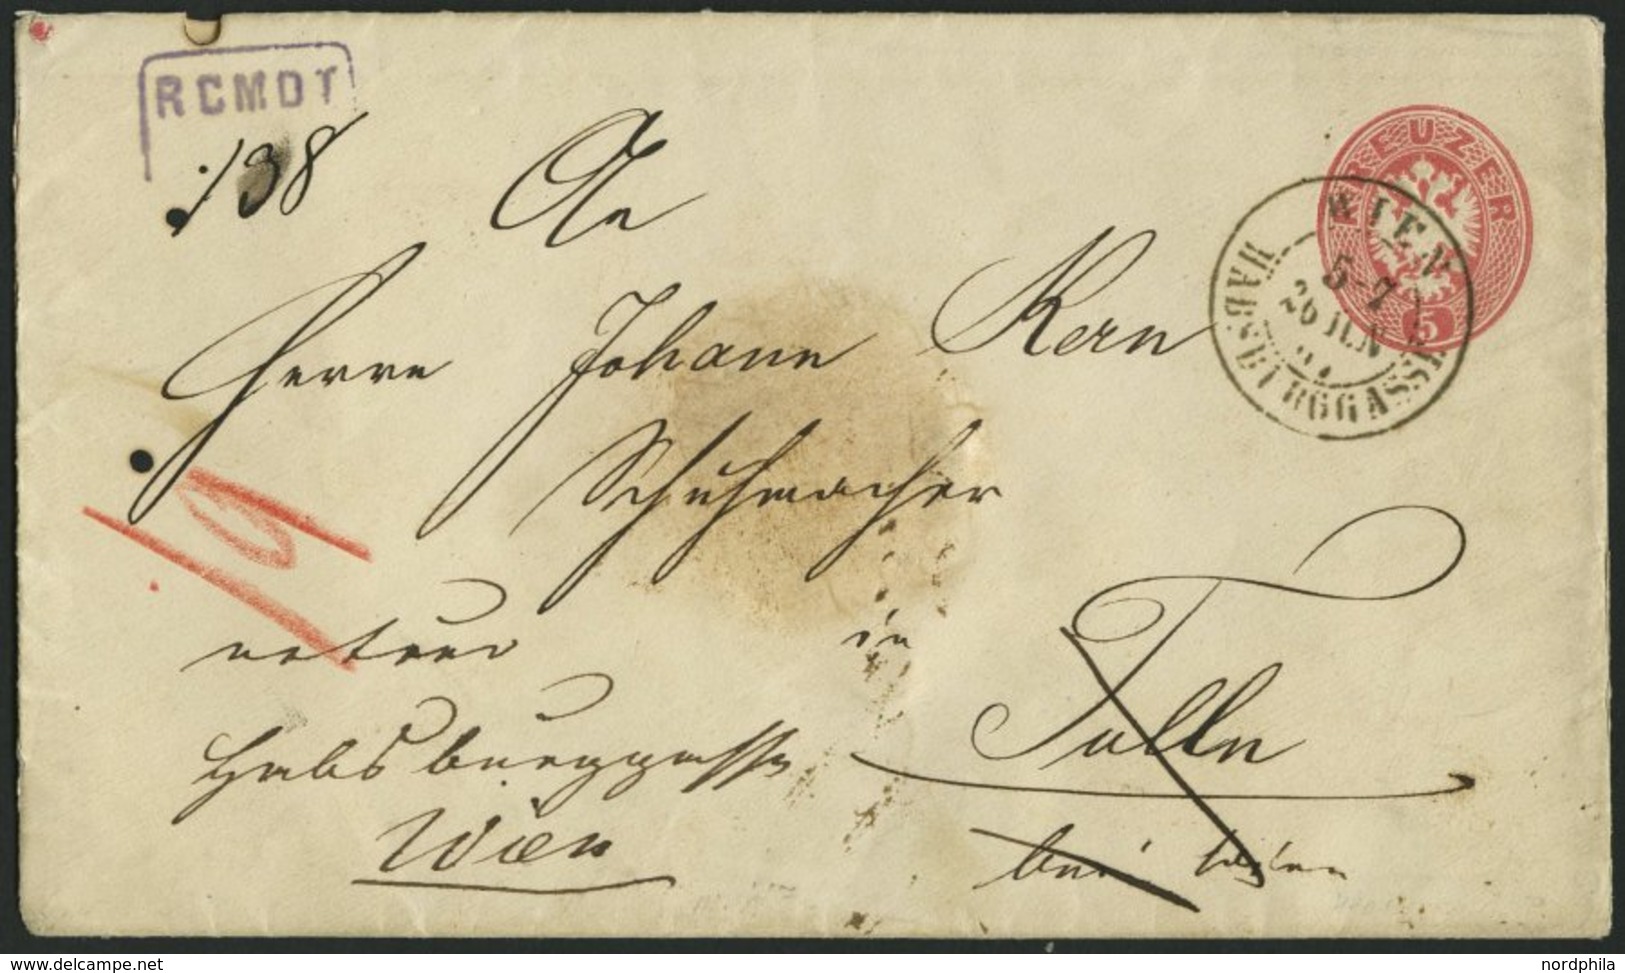 RCMDT
138
KREUZER
5
WIEN
5-7
26 JUN
HABSBURGGASSE
An
Herrn Johann Kern
Schuhmacher
19
retour in
Tulln
Habsburggasse
Wien
bei Wien
delcampe.net
nordphila